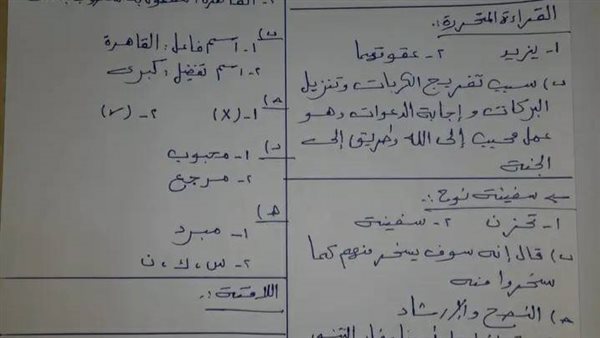 القراءة المتحررة :.
١- يزيد ٢- عقوقهما
ب) سبب تفريج الكربات وتنزيل
البركات وإجابة الدعوات وهو
عمل محبب إلى الله وطريق إلى
الجنة
سفينة نوح :.
١- تحزن ٢- سفينة
ب) قال إنه سوف يسخر منهم كما
سخروا منه
ج) النصح والإرشاد
ب) ١- اسم فاعل : القاهرة
٢- اسم تفضيل : كبرى
ج) ١- (X) ٢- (✓)
د) ١- محبوب
٢- مرجع
هـ)
١- مبرد
٢- س ، ك ، ن
اللافتة :.